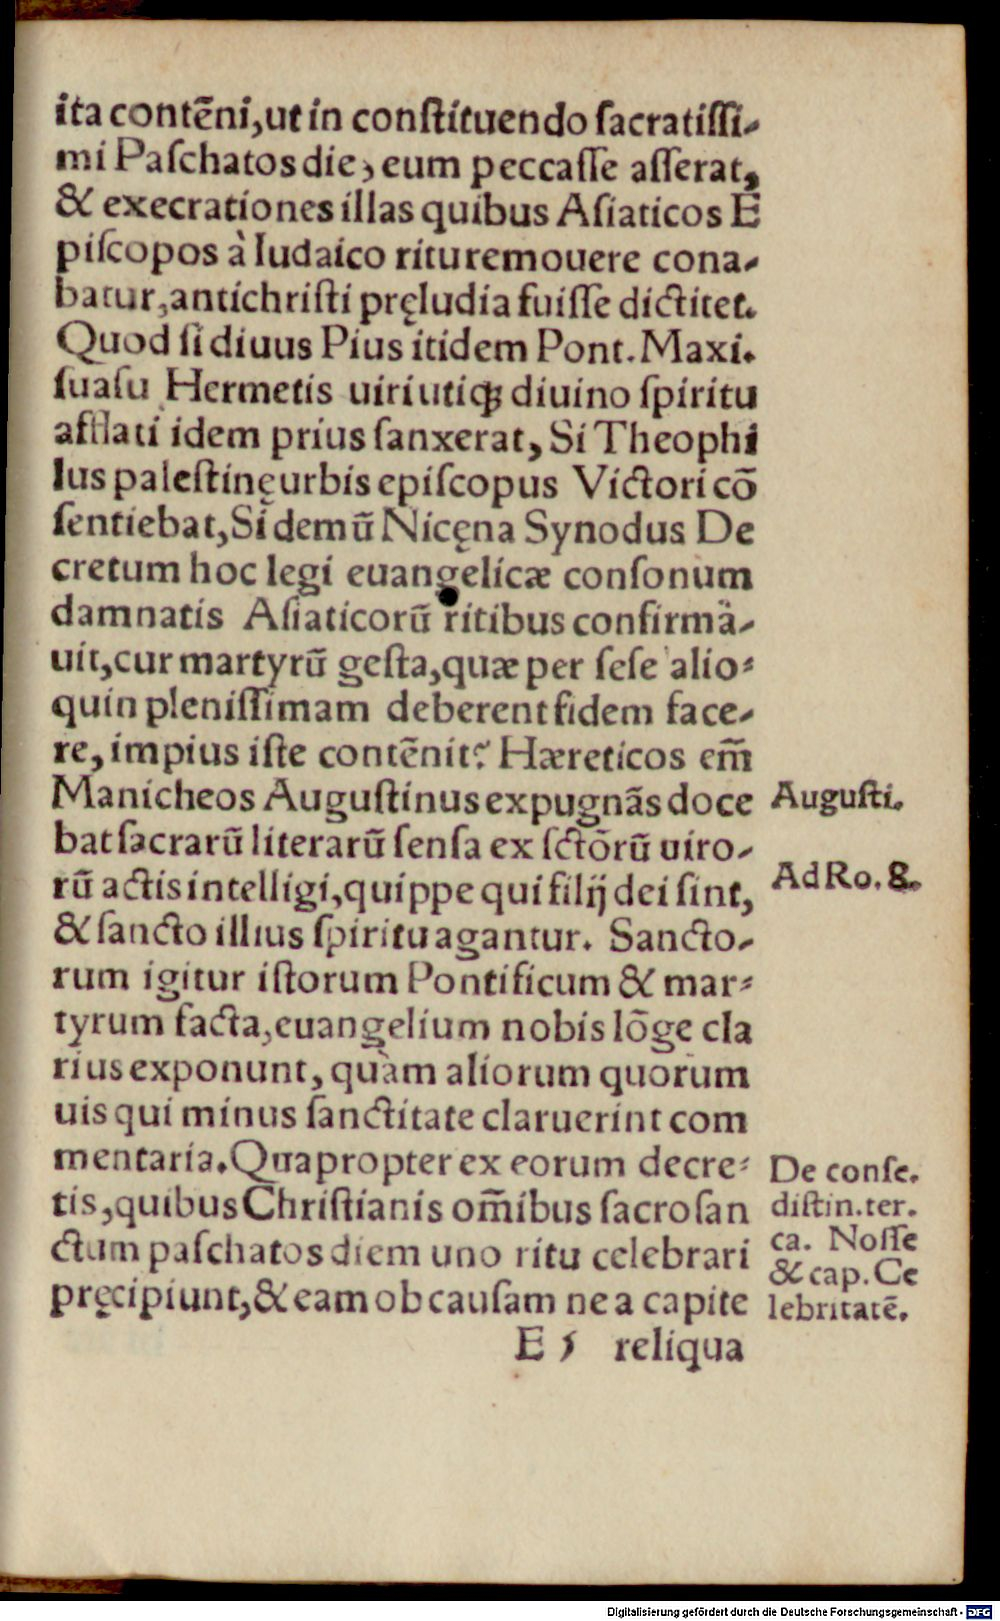 ita contẽni, ut in conſtituendo ſacratiſſi-
mi Paſchatos die, eum peccaſſe aſſerat,
& execrationes illas quibus Aſiaticos E
piſcopos à Iudaico ritu remouere cona-
batur, antichriſti pręludia fuiſſe dictitet.
Quod ſi diuus Pius itidem Pont. Maxi.
ſuaſu Hermetis uiri utiqꝫ diuino ſpiritu
afflati idem prius ſanxerat, Si Theophi
lus paleſtinę urbis epiſcopus Victori cõ
ſentiebat, Si demũ Nicęna Synodus De
cretum hoc legi euangelicæ conſonum
damnatis Aſiaticorũ ritibus confirma-
uit, cur martyrũ geſta, quæ per ſeſe alio-
quin pleniſſimam deberent fidem face-
re, impius iſte contẽnit? Hæreticos em̃
Manicheos Auguſtinus expugnãs doce
bat ſacrarũ literarũ ſenſa ex ſctõrũ uiro-
rũ actis intelligi, quippe qui filij dei ſint,
& ſancto illius ſpiritu agantur. Sancto-
rum igitur iſtorum Pontificum & mar-
tyrum facta, euangelium nobis lõge cla
rius exponunt, quàm aliorum quorum
uis qui minus ſanctitate claruerint com
mentaria. Quapropter ex eorum decre-
tis, quibus Chriſtianis om̃ibus ſacroſan
ctum paſchatos diem uno ritu celebrari
pręcipiunt, & eam ob cauſam ne a capite
E 5 reliqua
Auguſti.
Ad Ro. 8.
De conſe.
diſtin. ter.
ca. Noſſe
& cap. Ce
lebritatẽ.
Digitalisierung gefördert durch die Deutsche Forschungsgemeinschaft - DFG